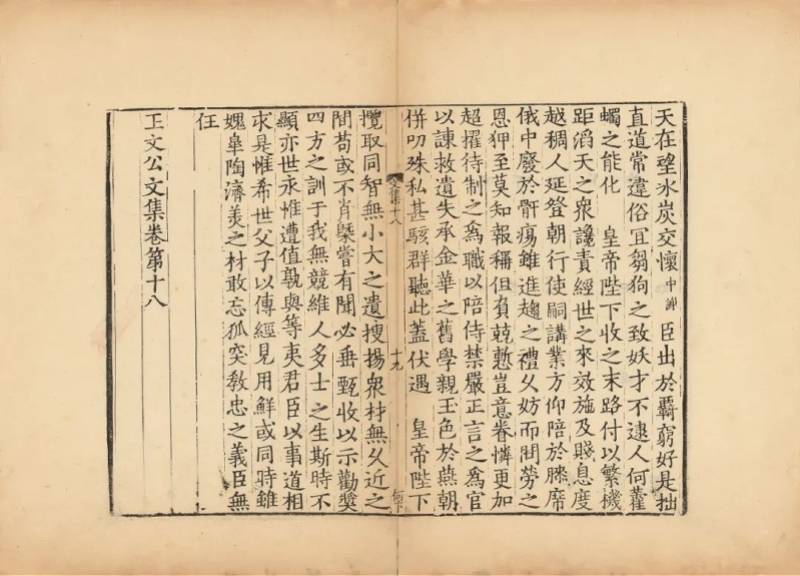 天在望氷炭交懷中謝臣出於覊窮好是拙
直道常違俗冝芻狗之致妖才不逮人何藿
蠋之能化　皇帝陛下收之末路付以繁機
距滔天之衆讒責經世之來效施及賤息度
越稠人延登朝行使嗣講業方仰陪於縢席
俄中廢於骭瘍雖進趨之禮久妨而閒勞之
恩狎至莫知報稱但負兢慙豈意眷憐更加
超擢待制之爲職以陪侍禁嚴正言之爲官
以諫救遺失承金華之舊學親玉色於燕朝
併叨殊私甚駭群聽此蓋伏遇　皇帝陛下
文集十八
十九
攬取同智無小大之遺搜揚衆材無久近之
間苟或不肖槩嘗有聞必垂甄收以示勸奬
四方之訓于我無競維人多士之生斯時不
顯亦世永惟遭值孰與等夷君臣以事道相
求是惟希世父子以傳經見用鮮或同時雖
媿臯陶濟美之材敢忘狐突敎忠之義臣無
任
王文公文集卷第十八